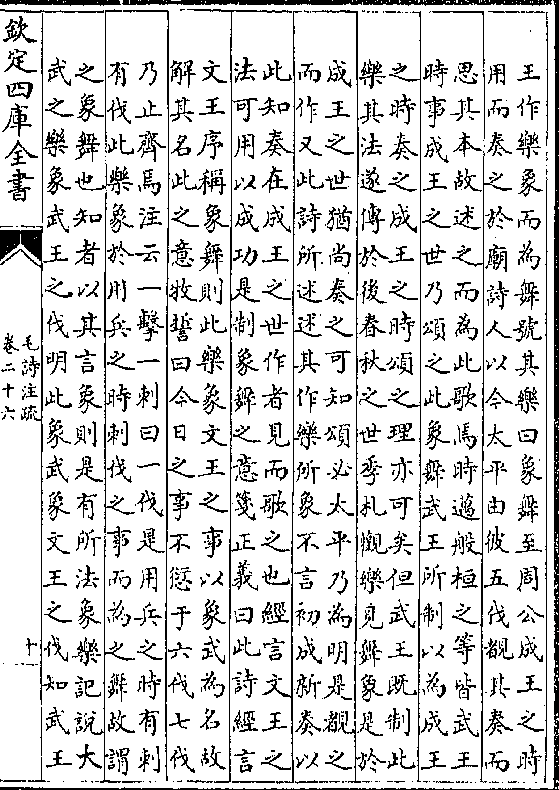 王作樂象而為舞號其樂曰象舞至周公成王之時
用而奏之於廟詩人以今太平由彼五伐覩其奏而
思其本故述之而為此歌焉時邁般桓之等皆武王
時事成王之世乃頌之此象舞武王所制以為成王
之時奏之成王之時頌之理亦可矣但武王既制此
樂其法遂傳於後春秋之世季札觀樂見舞象是於
成王之世猶尚奏之可知頌必太平乃為明是覩之
而作又此詩所述述其作樂所象不言初成新奏以
此知奏在成王之世作者見而歌之也經言文王之
法可用以成功是制象舞之意箋正義曰此詩經言
文王序稱象舞則此樂象文王之事以象武為名故
解其名此之意牧誓曰今日之事不愆于六伐七伐
乃止齊焉注云一擊一刺曰一伐是用兵之時有刺
有伐此樂象於用兵之時刺伐之事而為之舞故謂
之象舞也知者以其言象則是有所法象樂記說大
武之樂象武王之伐明此象武象文王之伐知武王
欽定四庫全書
毛詩注疏
卷二十六
十